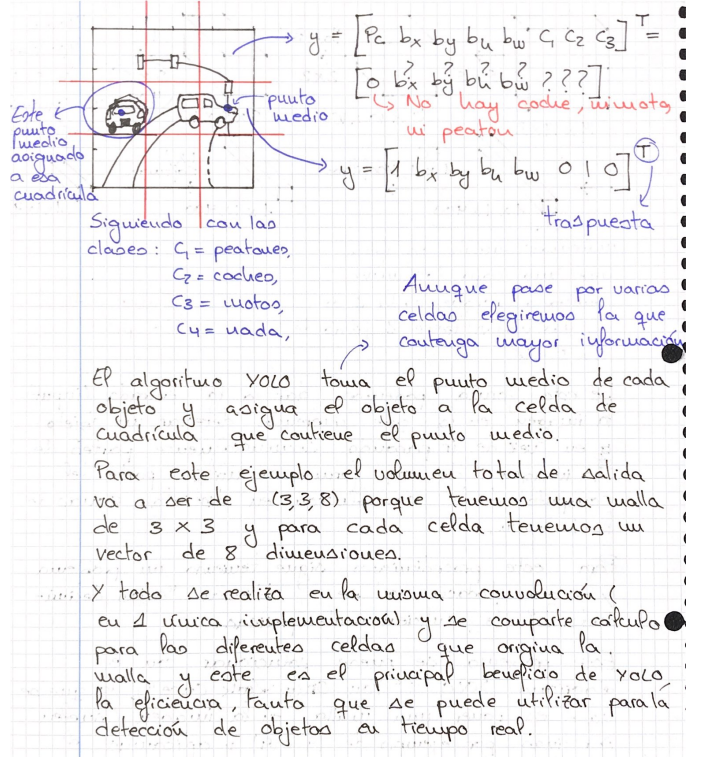 y = [Pc bx by bh bw C1 C2 C3]^T =
[0 bx? by? bh? bw? ? ? ?]
No hay coche, ni moto,
ni peaton
punto
medio
Este
punto
medio
asignado
a esa
cuadrícula
y = [1 bx by bh bw 0 1 0]^T
traspuesta
Siguiendo con las
clases: C1 = peatones,
C2 = coches,
C3 = motos,
C4 = nada,
Aunque pase por varias
celdas elegiremos la que
contenga mayor información
El algoritmo YOLO toma el punto medio de cada
objeto y asigna el objeto a la celda de
cuadrícula que contiene el punto medio.
Para este ejemplo el volumen total de salida
va a ser de (3,3,8) porque tenemos una malla
de 3 x 3 y para cada celda tenemos un
vector de 8 dimensiones.
Y todo se realiza en la misma convolución (
en 1 única implementación) y se comparte cálculo
para las diferentes celdas que origina la
malla y este es el principal beneficio de YOLO,
la eficiencia, tanto que se puede utilizar para la
detección de objetos en tiempo real.